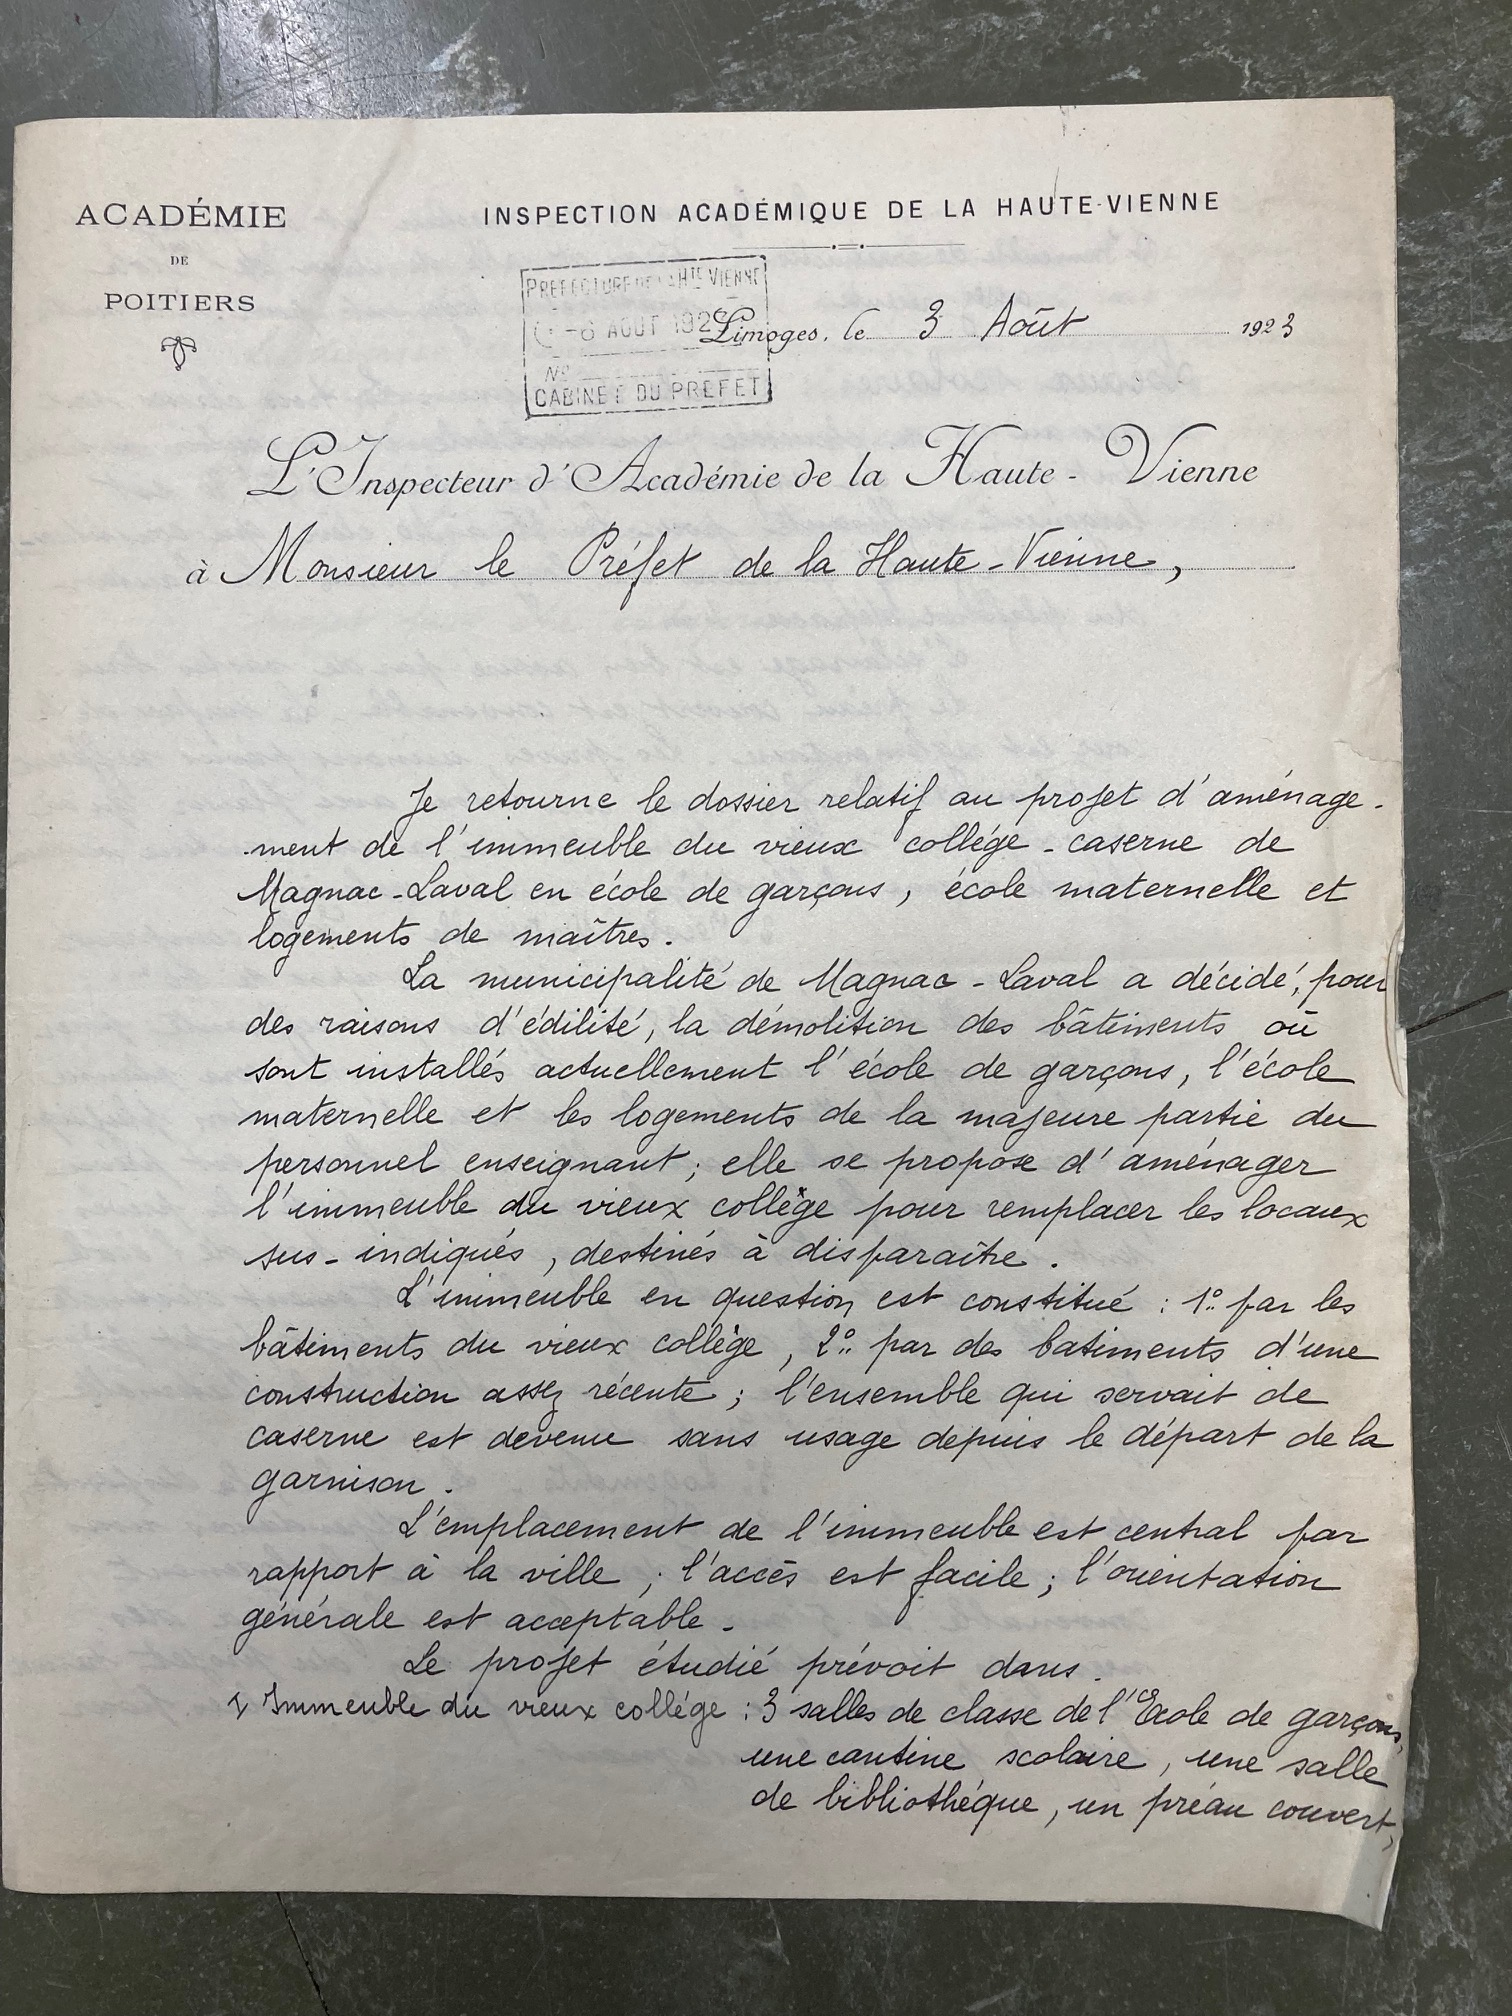 ACADÉMIE
DE
POITIERS
INSPECTION ACADÉMIQUE DE LA HAUTE-VIENNE
PREFECTURE DE LA HTE VIENNE
-6 AOUT 192
No
CABINET DU PREFET
Limoges, le 3 Août 1923
L'Inspecteur d'Académie de la Haute-Vienne
à Monsieur le Préfet de la Haute-Vienne,
Je retourne le dossier relatif au projet d'aménage-
-ment de l'immeuble du vieux collége-caserne de
Magnac-Laval en école de garçons, école maternelle et
logements de maîtres.
La municipalité de Magnac-Laval a décidé, pour
des raisons d'édilité, la démolition des bâtiments où
sont installés actuellement l'école de garçons, l'école
maternelle et les logements de la majeure partie du
personnel enseignant; elle se propose d'aménager
l'immeuble du vieux collège pour remplacer les locaux
sus-indiqués, destinés à disparaître.
L'immeuble en question est constitué : 1º par les
bâtiments du vieux collège, 2º par des batiments d'une
construction assez récente; l'ensemble qui servait de
caserne est devenu sans usage depuis le départ de la
garnison.
L'emplacement de l'immeuble est central par
rapport à la ville; l'accès est facile; l'orientation
générale est acceptable.
Le projet étudié prévoit dans.
I Immeuble du vieux collége : 3 salles de classe de l'Ecole de garçons,
une cantine scolaire, une salle
de bibliothéque, un préau couvert,